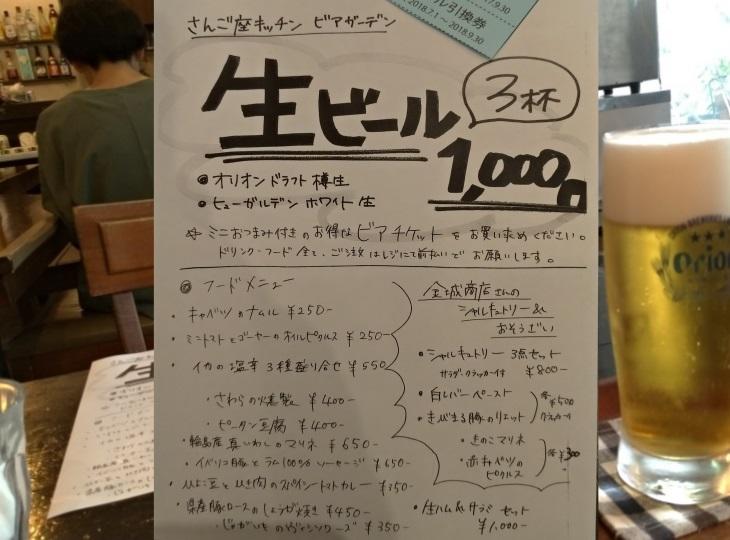 17.9.30
ル引換券
2018.7.1～2018.9.30
さんご座キッチン ビアガーデン
生ビール 3杯
1,000円
◎ オリオンドラフト 樽生
◎ ヒューガルデン ホワイト 生
☆ ミニおつまみ付きのお得な ビアチケット をお買い求めください。
ドリンク・フード 全て、ご注文はレジにて前払いで お願いします。
◎ フードメニュー
・キャベツのナムル ¥250-
・ミニトマトとゴーヤーのオイルピクルス ¥250-
・イカの塩辛 3種盛り合せ ¥550
・さわらの燻製 ¥400-
・ピータン豆腐 ¥400-
・輪島産 真いわしのマリネ ¥650-
・イベリコ豚とラム100%ソーセージ ¥650-
・ひよこ豆とひき肉のスパイシートマトカレー ¥350-
・県産豚ロースのしょうが焼き ¥450-
・じゃがいものヴィシソワーズ ¥350-
金城商店さんの
シャルキュトリー&
おそうざい
・シャルキュトリー 3点セット
サラダ・クラッカー付 ¥800-
・白レバーペースト
・きびまる豚のリエット
各¥500
クラッカー付
・きのこマリネ
・赤キャベツの
ピクルス
各¥300
・生ハム&サラミ セット
¥1,000-
Orion
生